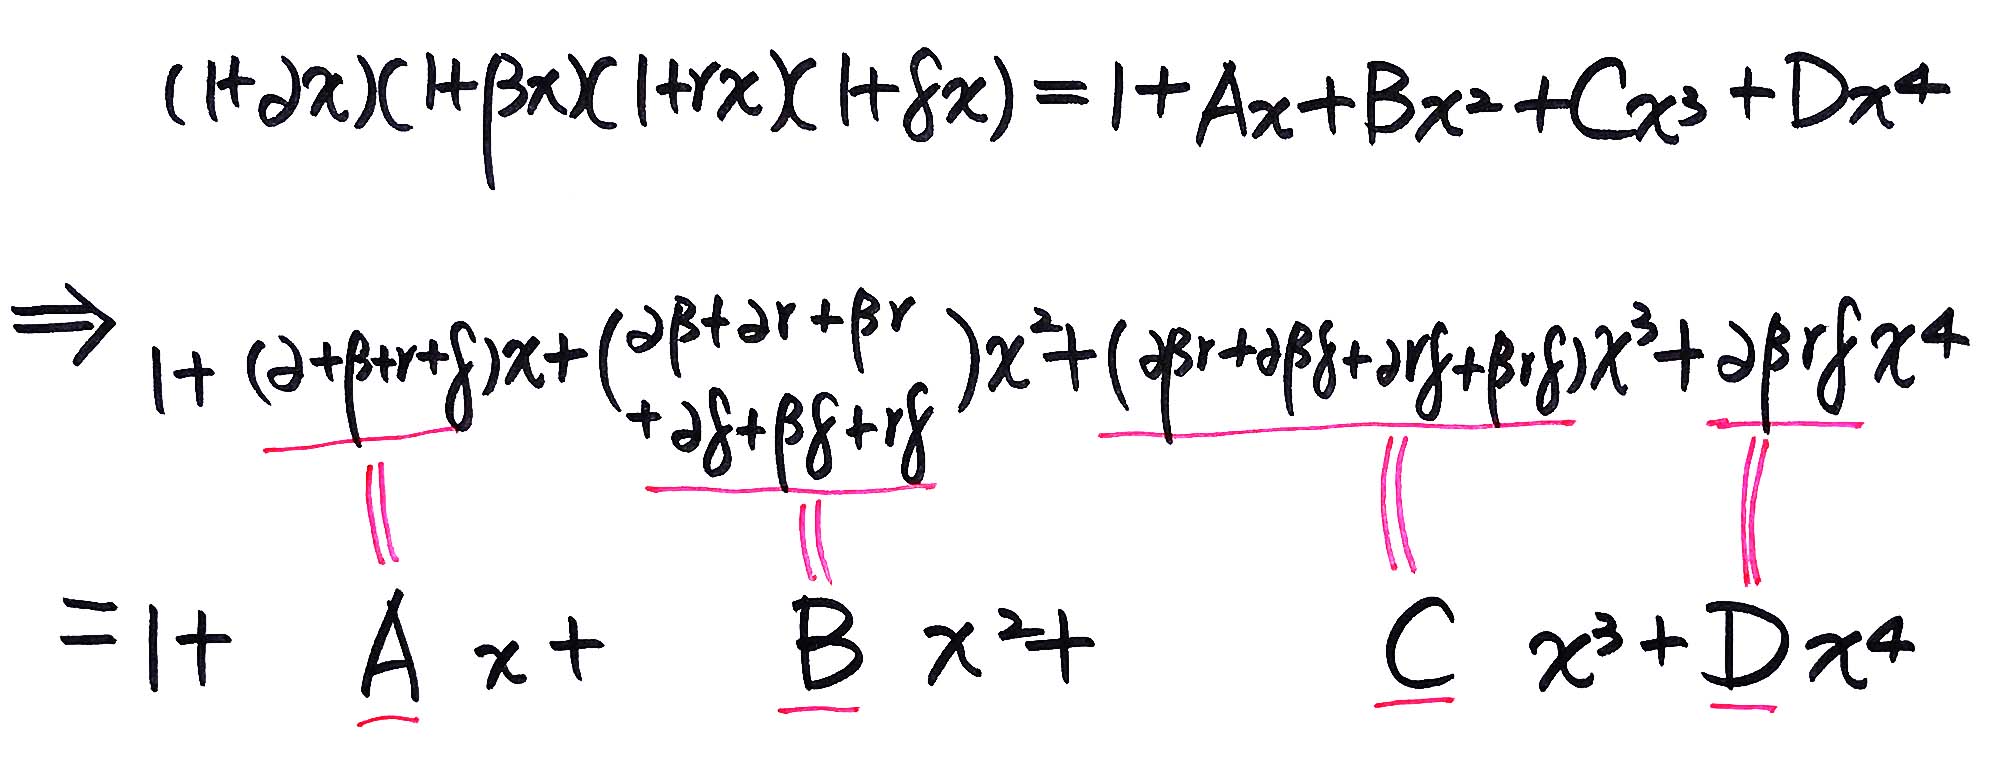 (1+αx)(1+βx)(1+γx)(1+δx)=1+Ax+Bx²+Cx³+Dx⁴
⇒ 1+(α+β+γ+δ)x+(αβ+αγ+βγ+αδ+βδ+γδ)x²+(αβγ+αβδ+αγδ+βγδ)x³+αβγδx⁴
=1+Ax+Bx²+Cx³+Dx⁴